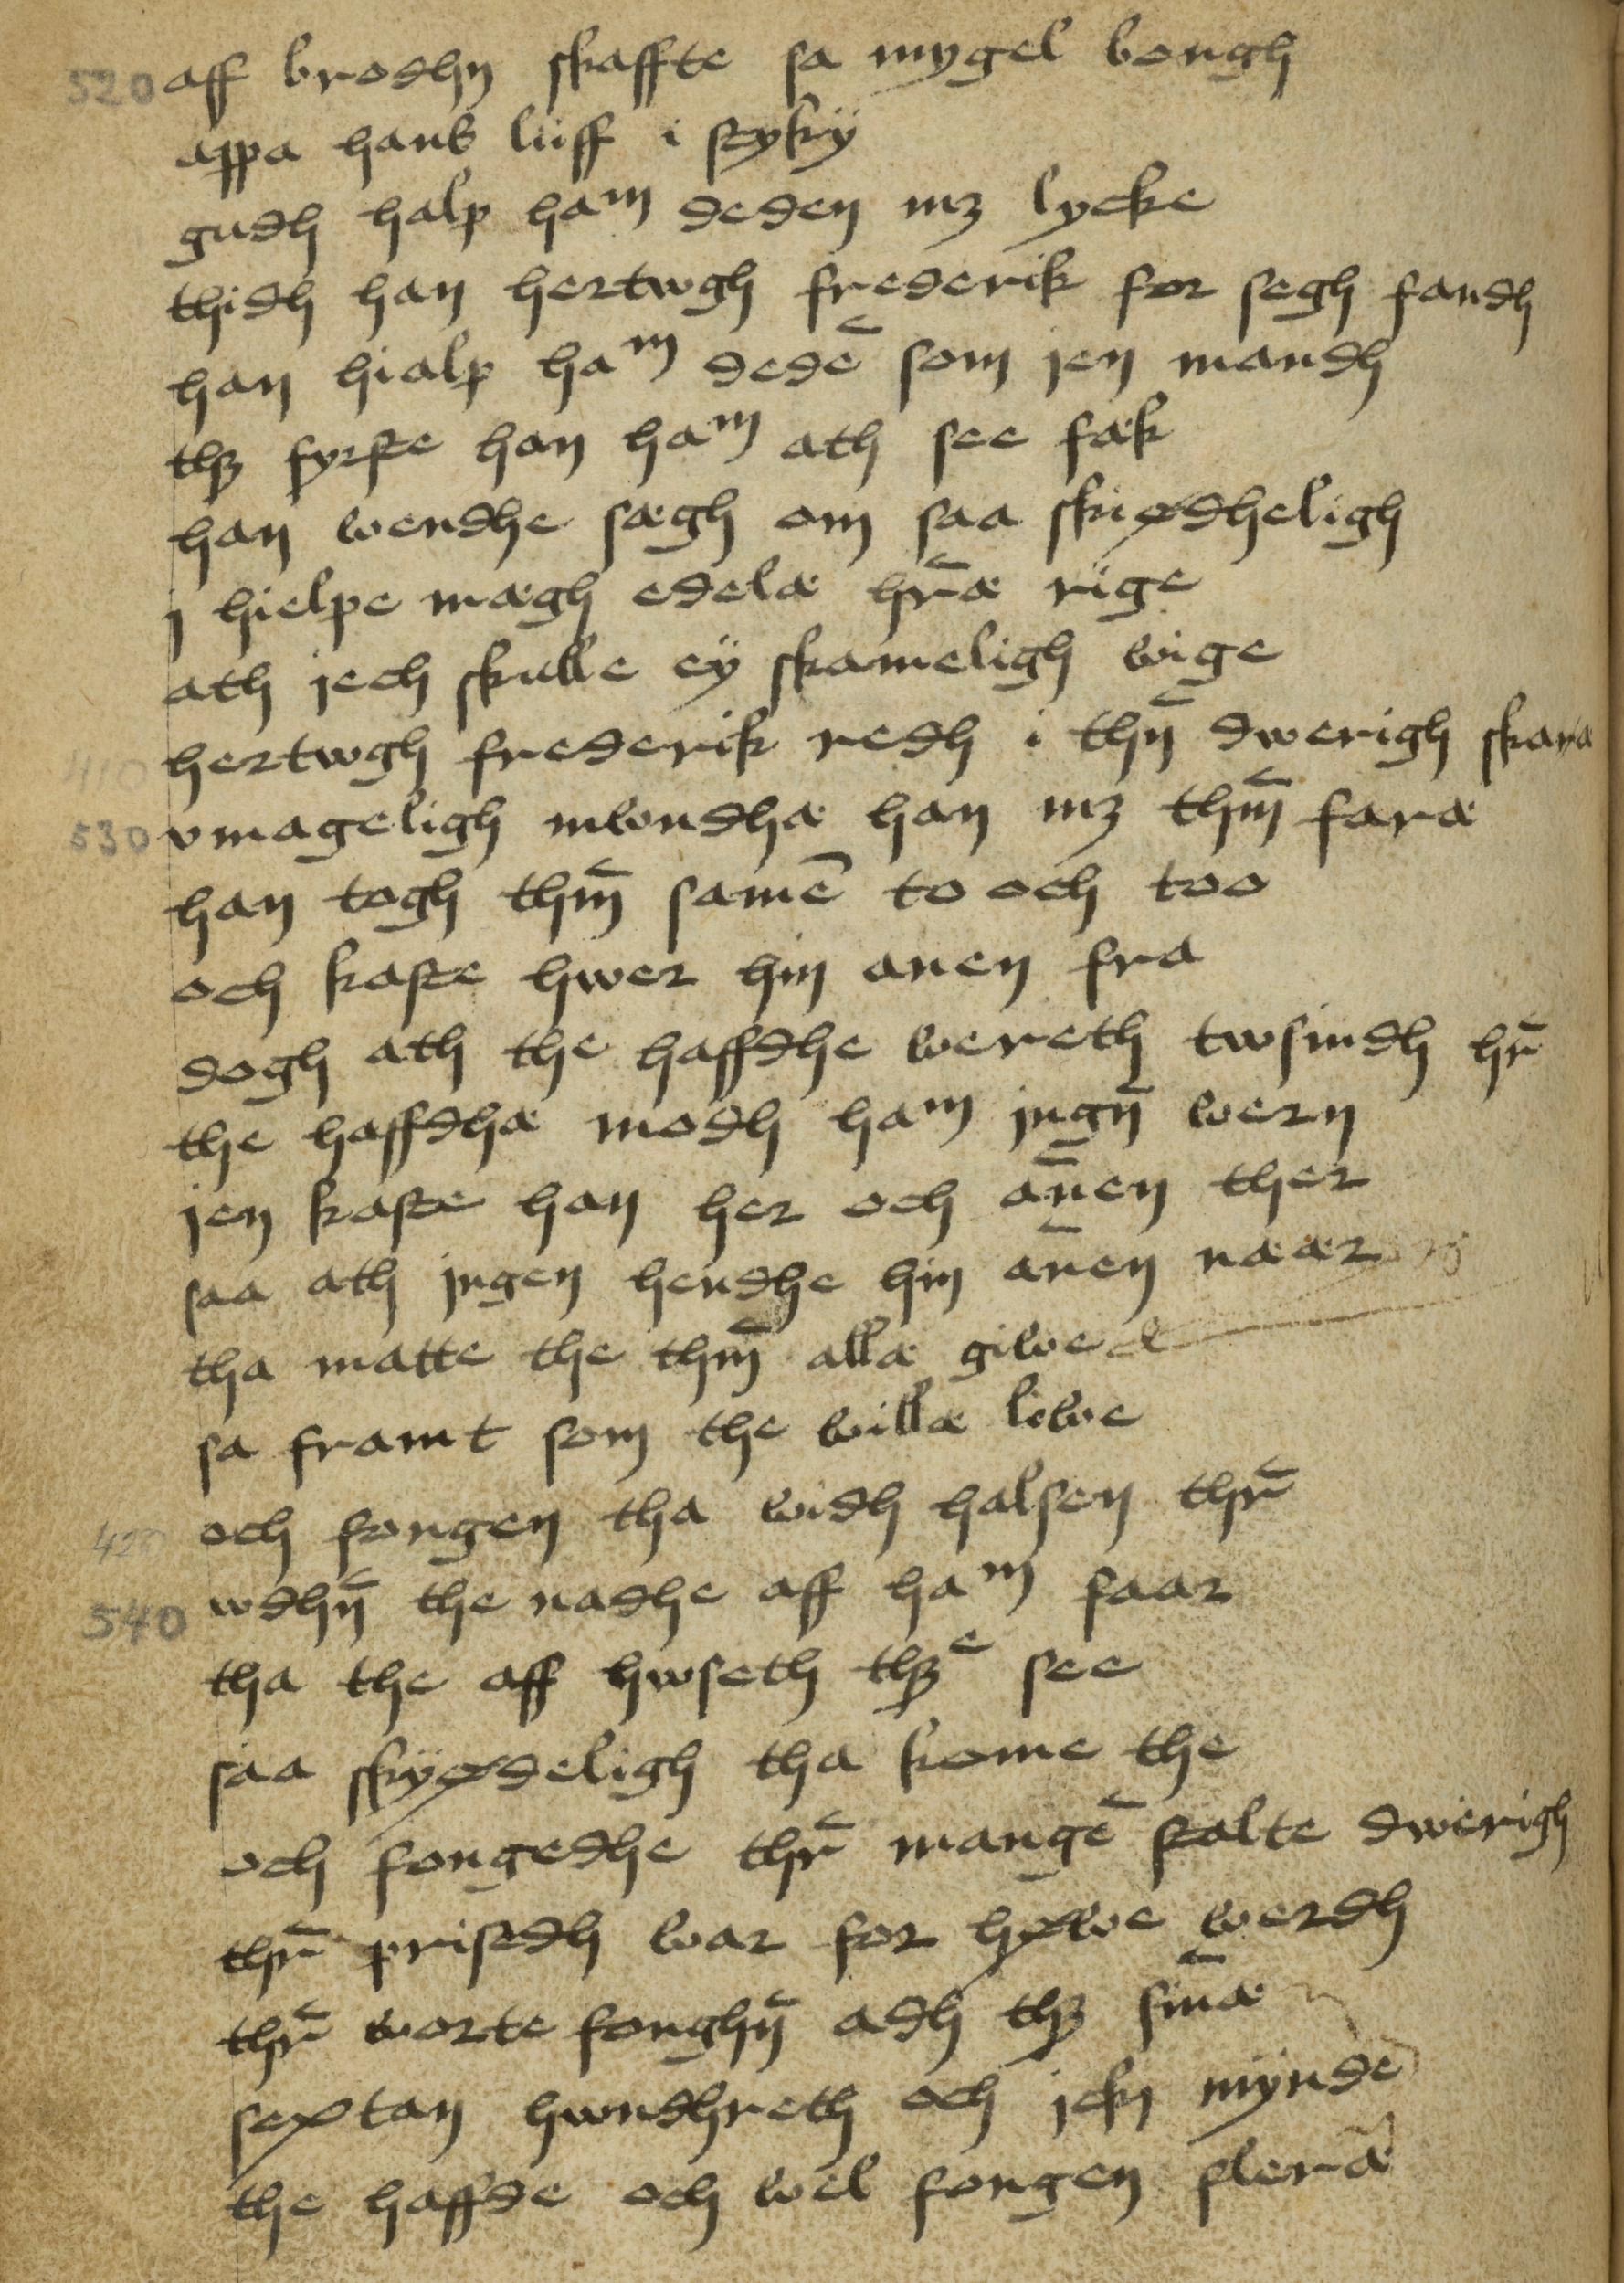 520 aff brodhn skaffte sa mygel bongh
appa hans liiff i stykÿ
gudh halp ham deden mz lycke
thidh han hertwgh frederik for segh fandh
han hialp ham dedē som jen mandh
thz fyrste han ham ath see fæk
han wendhe sægh om saa skiødheligh
j hielpe mægh edelæ hr̄æ rige
ath jech skulle eÿ skameligh wige
410 hertwgh frederik redh i thn̄ dwerigh skara
530 vmageligh mwndhæ han mz thm̄ faræ
han togh thm̄ samē to och too
och kaste hwer hin anen fra
dogh ath the haffdhe wereth twsindh hr̄
the haffdhæ modh ham jngn̄ wern
jen kaste han her och an̄en ther
saa ath jngen hendhe hin an̄en næær
tha matte the thm̄ allæ giwe
sa framt som the willæ liwe
420 och fongen tha widh halsen thr̄
540 wdhn̄ the nadhe aff ham faar
tha the aff hwseth thze see
saa skÿødeligh tha kome the
och fongedhe thr̄ mangē stalte dwerigh
thr̄ prisedh war for høwe werdh
thr̄ worte fonghn̄ adh thz sin̄æ
sextan hwndhreth och jcki mÿnde
the haffde och wel fongen fleræ